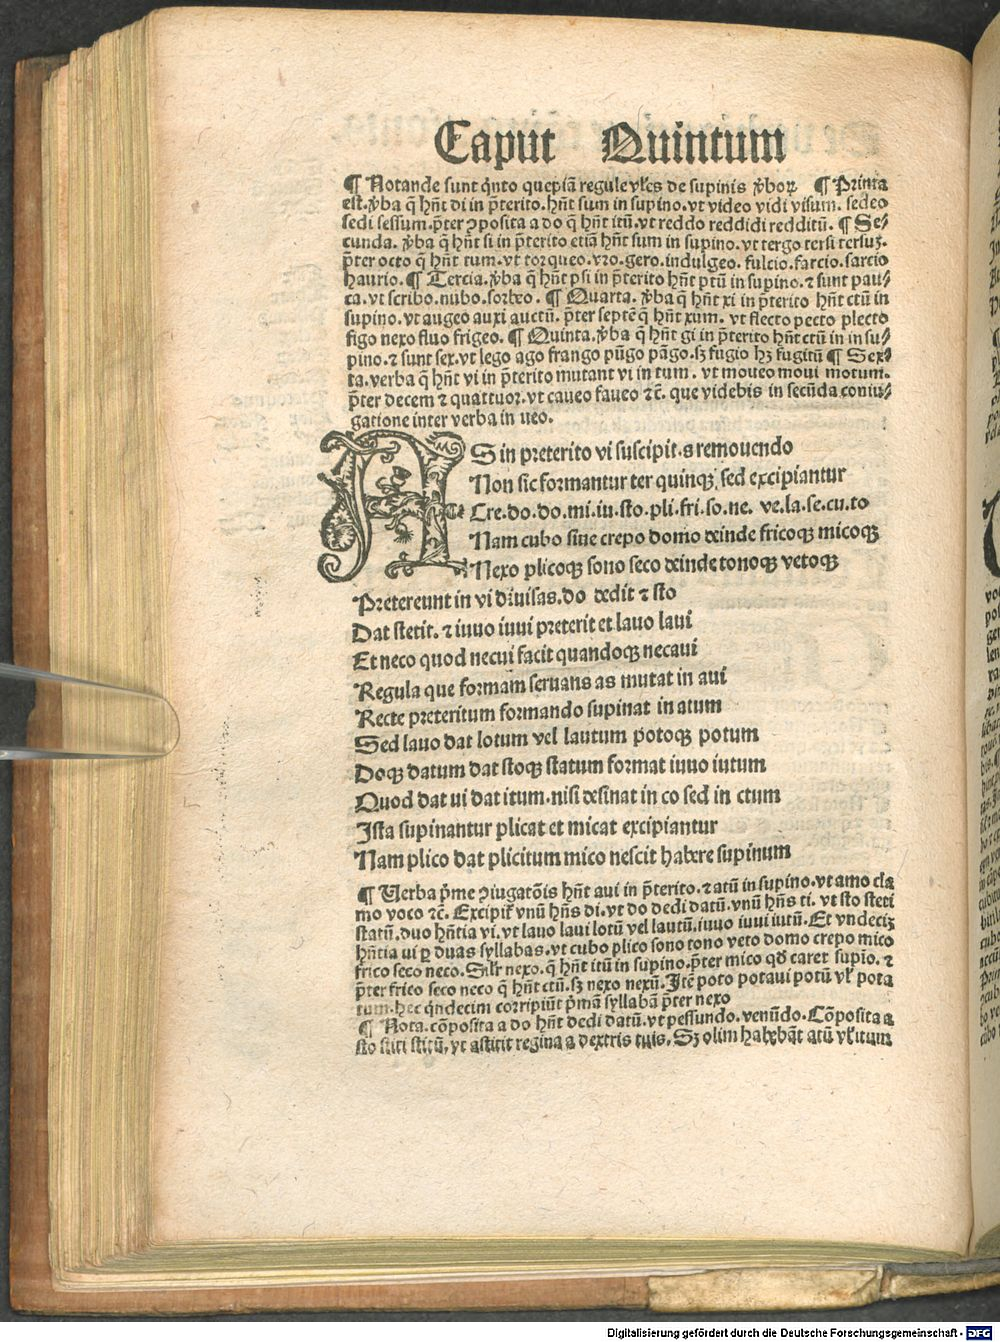 Caput Quintum
¶ Notande sunt q̈nto quepiã regule vl̕es de supinis v̕boꝝ ¶ Prima
est. v̕ba q̄ hñt di in p̄terito. hñt sum in supino. vt video vidi visum. sedeo
sedi sessum. p̄ter ɔposita a do q̄ hñt itũ. vt reddo reddidi redditũ. ¶ Se⸗
cunda. v̕ba q̄ hñt si in p̄terito etiã hñt sum in supino. vt tergo tersi tersuꝫ.
p̄ter octo q̄ hñt tum. vt torqueo. vro. gero. indulgeo. fulcio. farcio. sarcio
haurio. ¶ Tercia. v̕ba q̄ hñt psi in p̄terito hñt ptũ in supino. ⁊ sunt pau⸗
ca. vt scribo. nubo. sorbeo. ¶ Quarta. v̕ba q̄ hñt xi in p̄terito hñt ctũ in
supino. vt augeo auxi auctũ. p̄ter septẽ q̄ hñt xum. vt flecto pecto plecto
figo nexo fluo frigeo. ¶ Quinta. v̕ba q̄ hñt gi in p̄terito hñt ctũ in in su⸗
pino. ⁊ sunt sex. vt lego ago frango pũgo pãgo. sꝫ fugio hꝫ fugitũ ¶ Sex⸗
ta. verba q̄ hñt vi in p̄terito mutant vi in tum. vt moveo movi motum.
p̄ter decem ⁊ quattuor. vt caveo faveo ⁊c̄. que videbis in secũda coniu⸗
gatione inter verba in ueo.
AS in preterito vi suscipit. s removendo
Non sic formantur ter quinqꝫ sed excipiantur
Cre. do. do. mi. iu. sto. pli. fri. so. ne. ve. la. se. cu. to
Nam cubo sive crepo domo deinde fricoqꝫ micoqꝫ
Nexo plicoqꝫ sono seco deinde tonoqꝫ vetoqꝫ
Pretereunt in vi divisas. do dedit ⁊ sto
Dat stetit. ⁊ iuvo iuvi preterit et lavo lavi
Et neco quod necui facit quandoqꝫ necavi
Regula que formam servans as mutat in avi
Recte preteritum formando supinat in atum
Sed lavo dat lotum vel lautum potoqꝫ potum
Doqꝫ datum dat stoqꝫ statum format iuvo iutum
Quod dat ui dat itum. nisi desinat in co sed in ctum
Ista supinantur plicat et micat excipiantur
Nam plico dat plicitum mico nescit habere supinum
¶ Verba p̄me ɔiugatõis hñt avi in p̄terito. ⁊ atũ in supino. vt amo cla
mo voco ⁊c̄. Excipit̕ vnũ hñs di. vt do dedi datũ. vnũ hñs ti. vt sto steti
statũ. duo hñtia vi. vt lavo lavi lotũ vel lautũ. iuvo iuvi iutũ. Et vndeciꝫ
hñtia ui ꝑ duas syllabas. vt cubo plico sono tono veto domo crepo mico
frico seco neco. Sil̕r nexo. q̄ hñt itũ in supino. p̄ter mico qd̕ caret supĩo. ⁊
p̄ter frico seco neco q̄ hñt ctũ. sꝫ nexo nexũ. Itẽ poto potavi potũ vl̕ pota
tum. hec q̈ndecim corripiũt p̄mã syllabã p̄ter nexo
¶ Nota. cõposita a do hñt dedi datũ. vt pessundo. venũdo. Cõposita a
sto stiti stitũ, vt astitit regina a dextris tuis. Sꝫ olim habebãt atũ vl̕ itum
Digitalisierung gefördert durch die Deutsche Forschungsgemeinschaft - DFG